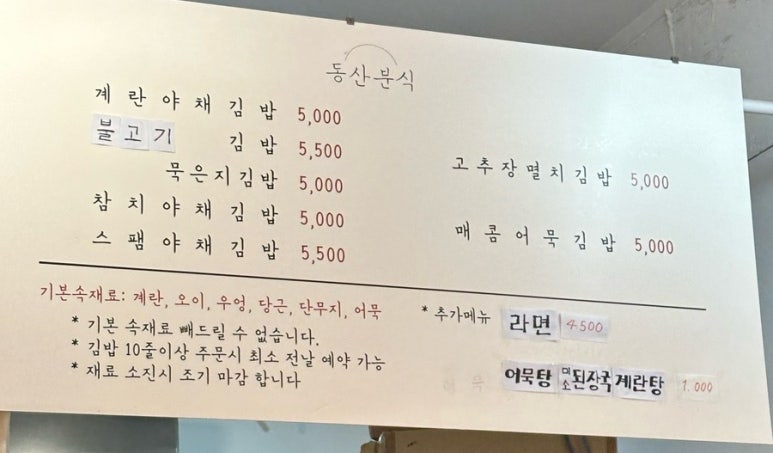 동산분식
계란야채김밥 5,000
불고기 김밥 5,500
묵은지김밥 5,000
참치야채김밥 5,000
스팸야채김밥 5,500
고추장멸치김밥 5,000
매콤어묵김밥 5,000
기본속재료: 계란, 오이, 우엉, 당근, 단무지, 어묵
* 기본 속재료 빼드릴 수 없습니다.
* 김밥 10줄이상 주문시 최소 전날 예약 가능
* 재료 소진시 조기 마감 합니다
* 추가메뉴 라면 4500
어묵탕 미소된장국 계란탕 1.000